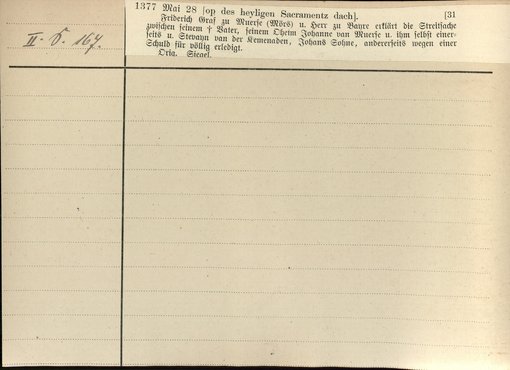 1377 Mai 28 [op des heyligen Sacramentz dach]. [31
Friderich Graf zu Muerse (Mörs) u. Herr zu Baure erklärt die Streitsache
zwischen seinem † Vater, seinem Oheim Johanne van Muerse u. ihm selbst einer-
seits u. Stevahn van der Kemenaden, Johans Sohne, andererseits wegen einer
Schuld für völlig erledigt.
Orig. Siegel.
II. S. 167.